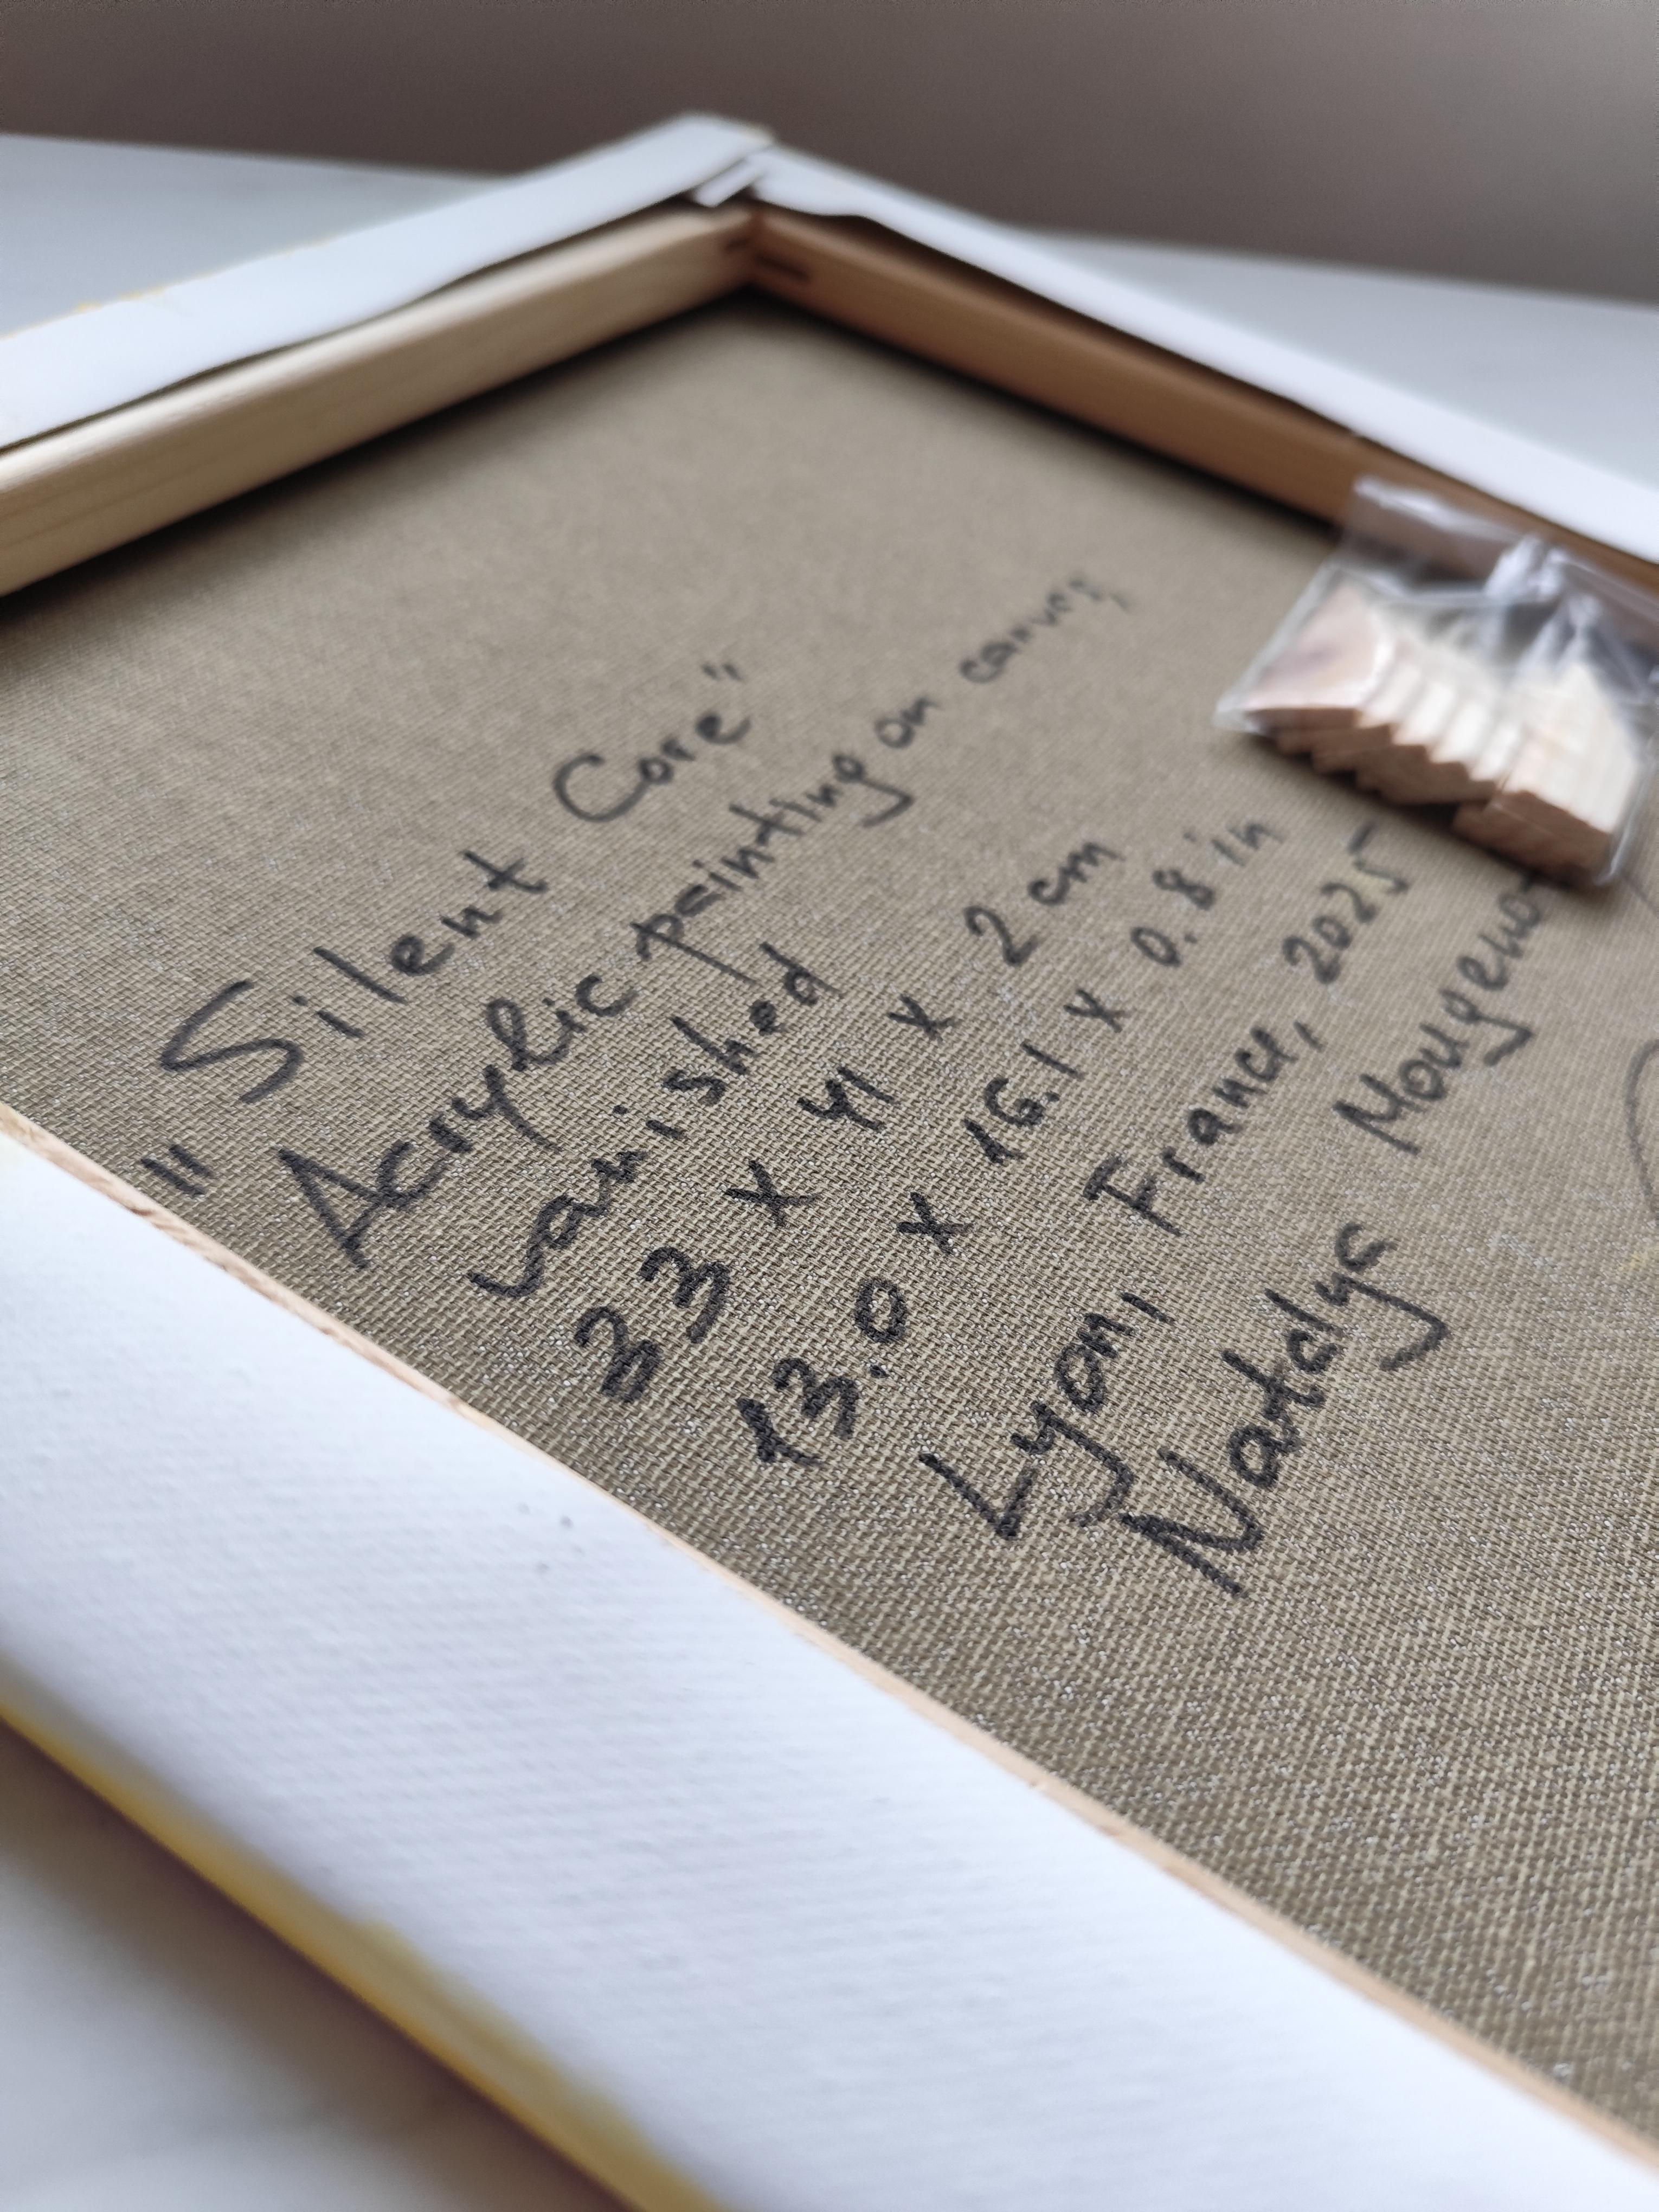 "Silent Core"
Acrylic painting on canvas,
varnished
33 x 41 x 2 cm
13.0 x 16.1 x 0.8 in
Lyon, France, 2025
Natalya Mougenot